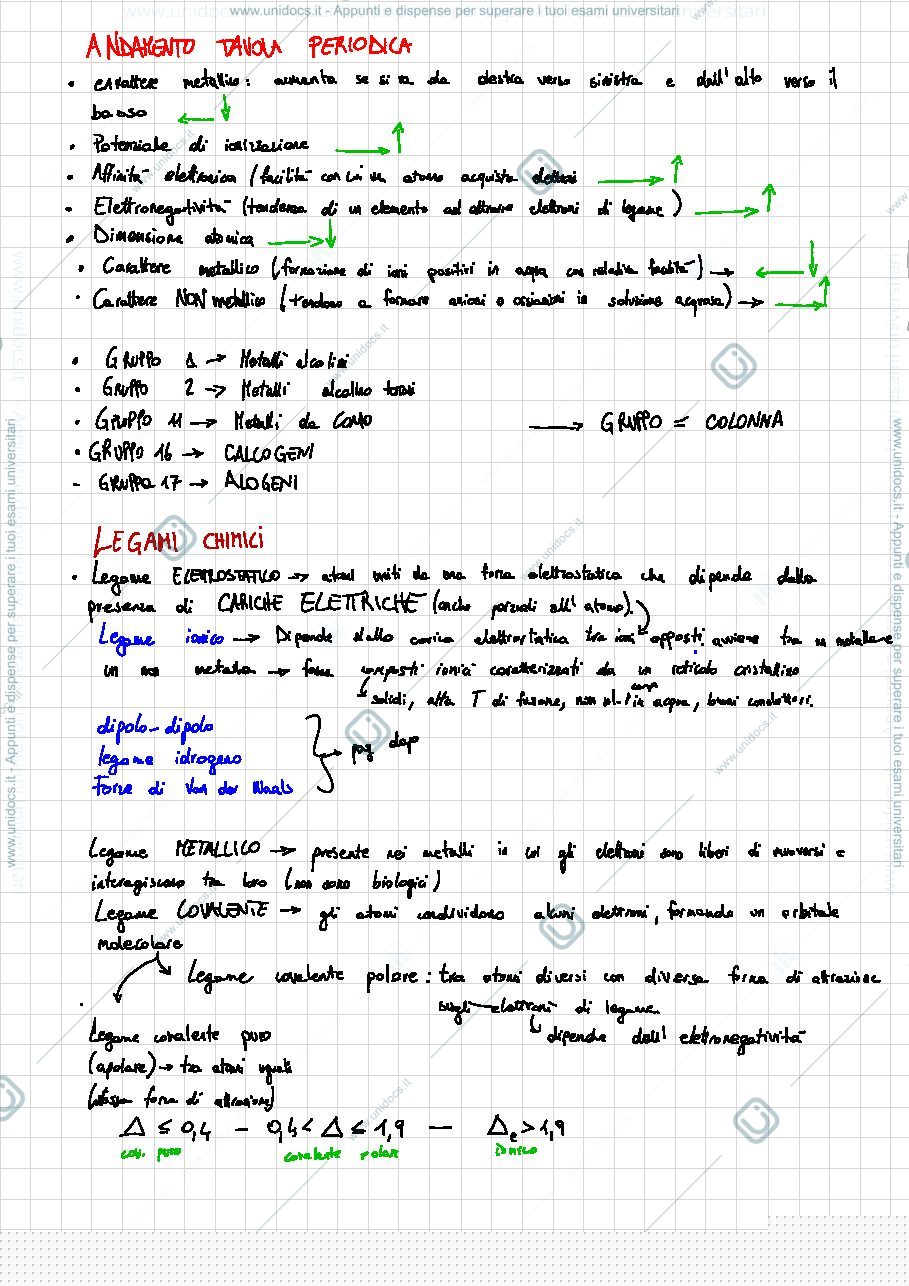 www.unidocs.it - Appunti e dispense per superare i tuoi esami universitari
ANDAMENTO TAVOLA PERIODICA
• carattere metallico: aumenta se si va da destra verso sinistra e dall'alto verso il
basso ← ↓
• Potenziale di ionizzazione → ↑
• Affinità elettronica (facilità con cui un atomo acquista elettroni → ↑
• Elettronegatività (tendenza di un elemento ad attrarre elettroni di legame) → ↑
• Dimensione atomica → ↓
• Carattere metallico (formazione di ioni positivi in acqua con relativa facilità) → ← ↓
• Carattere NON metallico (tendono a formare anioni o ossianioni in soluzione acquosa) → → ↑
• GRUPPO 1 → Metalli alcalini
• GRUPPO 2 → Metalli alcalino terrosi
• GRUPPO 11 → Metalli da conio → GRUPPO = COLONNA
• GRUPPO 16 → CALCOGENI
- GRUPPO 17 → ALOGENI
LEGAMI CHIMICI
• Legame ELETTROSTATICO → atomi uniti da una forza elettrostatica che dipende dalla
presenza di CARICHE ELETTRICHE (anche parziali all'atomo).
Legame ionico → Dipende dalla carica elettrostatica tra ioni opposti. avviene tra un metallo e
un non metallo → forma composti ionici caratterizzati da un reticolo cristallino
solidi, alta T di fusione, in acqua, buoni conduttori.
dipolo-dipolo
legame idrogeno
Forze di Van der Waals
pag dopo
Legame METALLICO → presente nei metalli in cui gli elettroni sono liberi di muoversi e
interagiscono tra loro (non sono biologici)
Legame COVALENTE → gli atomi condividono alcuni elettroni, formando un orbitale
molecolare
Legame covalente polare: tra atomi diversi con diversa forza di attrazione
sugli elettroni di legame
dipende dall'elettronegatività
Legame covalente puro
(apolare) → tra atomi uguali
(stessa forza di attrazione)
Δ ≤ 0,4 - 0,4 < Δ ≤ 1,9 - Δe > 1,9
cov. puro covalente polare ionico